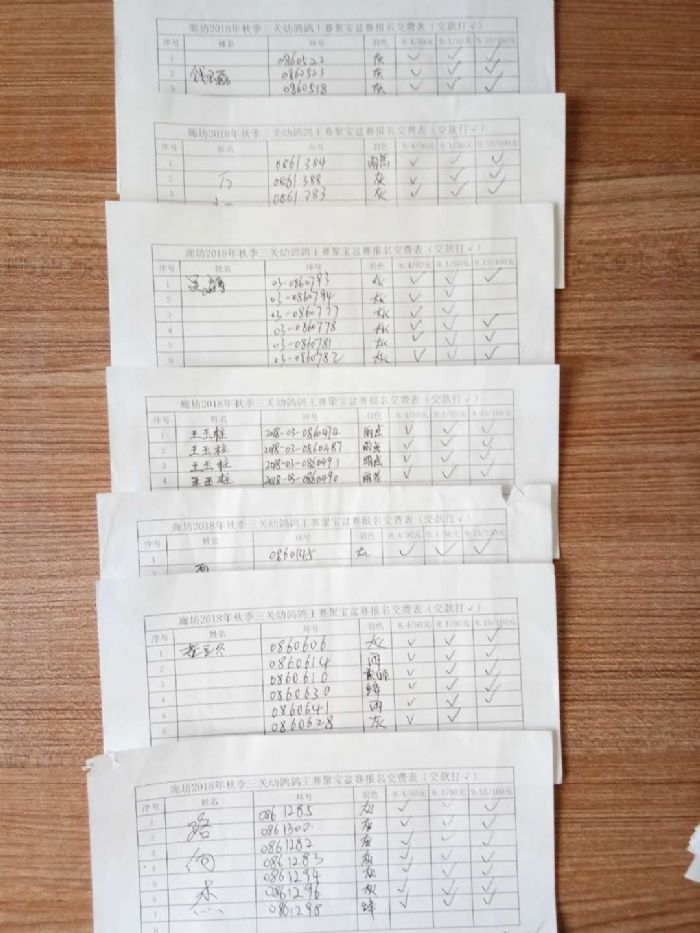 廊坊2018年秋季三关幼鸽鸽王赛聚宝盆赛报名交费表（交款打√）
序号 姓名 环号 羽色 8.4/50元 9.1/50元 9.15/100元
1 0860522 灰 √ √ √
2 0860521 灰 √ √ √
3 0860518 灰 √ √ √
廊坊2018年秋季三关幼鸽鸽王赛聚宝盆赛报名交费表（交款打√）
序号 姓名 环号 羽色 8.4/50元 9.1/50元 9.15/100元
1 0861384 雨点 √ √ √
2 0861388 灰 √ √ √
3 0861783 灰 √ √ √
廊坊2018年秋季三关幼鸽鸽王赛聚宝盆赛报名交费表（交款打√）
序号 姓名 环号 羽色 8.4/50元 9.1/50元 9.15/100元
1 03-0860793 灰 √ √ √
2 03-0860794 灰 √ √
3 03-0860777 灰 √ √
4 03-0860778 灰 √ √ √
5 03-0860781 灰 √ √ √
6 03-0860782 灰 √ √ √
廊坊2018年秋季三关幼鸽鸽王赛聚宝盆赛报名交费表（交款打√）
序号 姓名 环号 羽色 8.4/50元 9.1/50元 9.15/100元
1 王玉柱 2018-03-0860474 雨点 √ √ √
2 王玉柱 2018-03-0860487 雨点 √ √ √
3 王玉柱 2018-03-0860491 雨点 √ √ √
4 王玉柱 2018-03-0860490 雨点 √ √ √
廊坊2018年秋季三关幼鸽鸽王赛聚宝盆赛报名交费表（交款打√）
序号 姓名 环号 羽色 8.4/50元 9.1/50元 9.15/100元
1 灰 √ √ √
廊坊2018年秋季三关幼鸽鸽王赛聚宝盆赛报名交费表（交款打√）
序号 姓名 环号 羽色 8.4/50元 9.1/50元 9.15/100元
1 0860606 灰 √ √ √
2 0860614 雨 √ √ √
3 0860610 √ √ √
4 0860630 绛 √ √ √
5 0860641 雨 √ √
6 0860628 灰 √ √
廊坊2018年秋季三关幼鸽鸽王赛聚宝盆赛报名交费表（交款打√）
序号 姓名 环号 羽色 8.4/50元 9.1/50元 9.15/100元
1 路 0861285 灰 √ √ √
2 0861300 灰 √ √ √
3 向 0861282 灰 √ √ √
4 0861283 灰 √ √ √
5 0861294 灰 √ √ √
6 杰 0861296 灰 √ √ √
7 0861298 绛 √ √ √
8